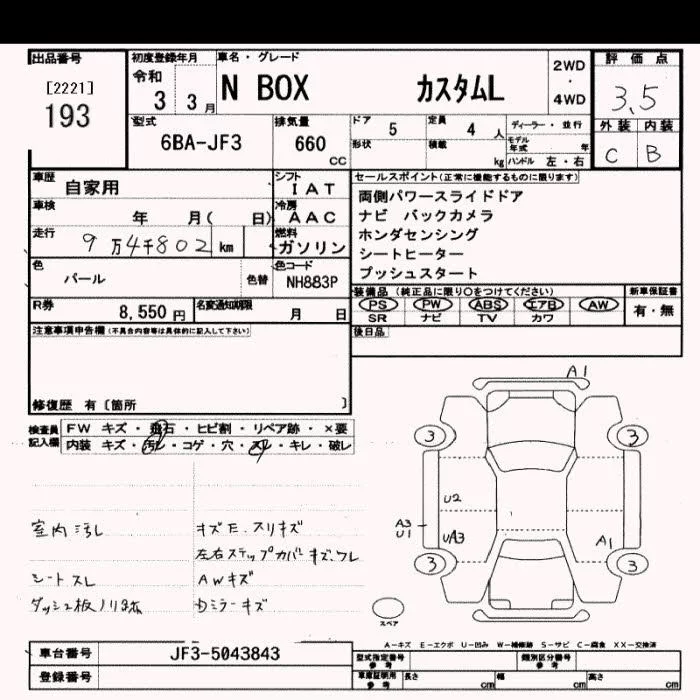 出品番号
[2221]
193
初度登録年月
令和
3 3月
車名・グレード
N BOX カスタムL
2WD
・
4WD
評価点
3.5
外装 内装
C B
型式
6BA-JF3
排気量
660
cc
ドア
5
定員
4 人
形状
積載
kg
ディーラー・並行
モデル年式 年
ハンドル 左・右
車歴
自家用
シフト
IAT
車検
年 月( 日)
冷房
AAC
走行
9万4千802 km
燃料
ガソリン
色
パール
色替
色コード
NH883P
R券
8,550円
名変通知期限
月 日
セールスポイント(正常に機能するものに限ります)
両側パワースライドドア
ナビ バックカメラ
ホンダセンシング
シートヒーター
プッシュスタート
装備品(純正品に限り○をつけてください)
PS PW ABS エアB AW
SR ナビ TV カワ
新車保証書
有・無
後日品
注意事項申告欄(不具合内容等は具体的に記入して下さい)
修復歴 有〔箇所 〕
検査員
記入欄
FW キズ・飛石・ヒビ割・リペア跡・×要
内装 キズ・汚レ・コゲ・穴・スレ・キレ・破レ
室内汚レ
シートスレ
ダッシュ板ノリ跡
キズE、スリキズ
左右ステップカバーキズ、ワレ
AWキズ
Dミラーキズ
A1
3
3
U2
A3
U1
UA3
A1
3
3
スペア
A-キズ E-エクボ U-凹み W-補修跡 S-サビ C-腐食 XX-交換済
車台番号
JF3-5043843
登録番号
型式指定番号
参考
類別区分番号
参考
車庫証明用
参考
長さ cm
幅 cm
高さ cm